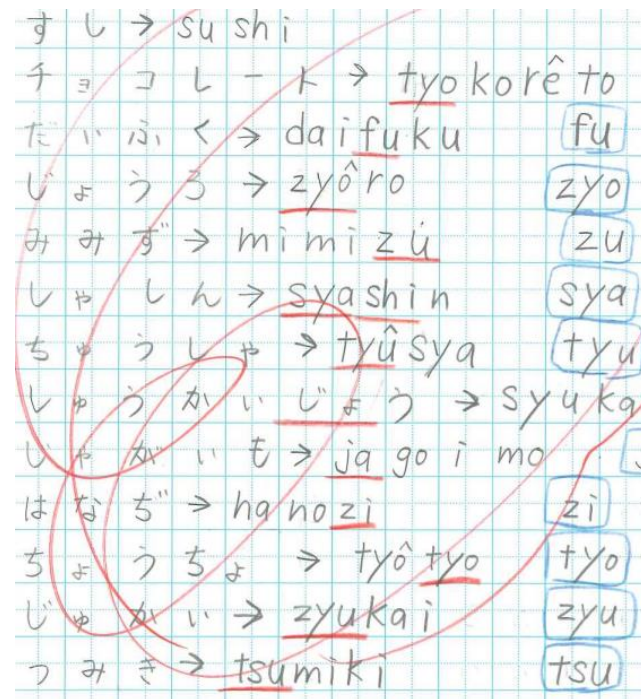 すし→sushi
チョコレート→tyokorêto
だいふく→daifuku fu
じょうろ→zyôro zyo
みみず→mimizu zu
しゃしん→syashin sya
ちゅうしゃ→tyûsya tyu
しゅうかいじょう→syuka
じゃがいも→jagoimo
はなぢ→hanozi zi
ちょうちょ→tyôtyo tyo
じゅかい→zyukai zyu
つみき→tsumiki tsu